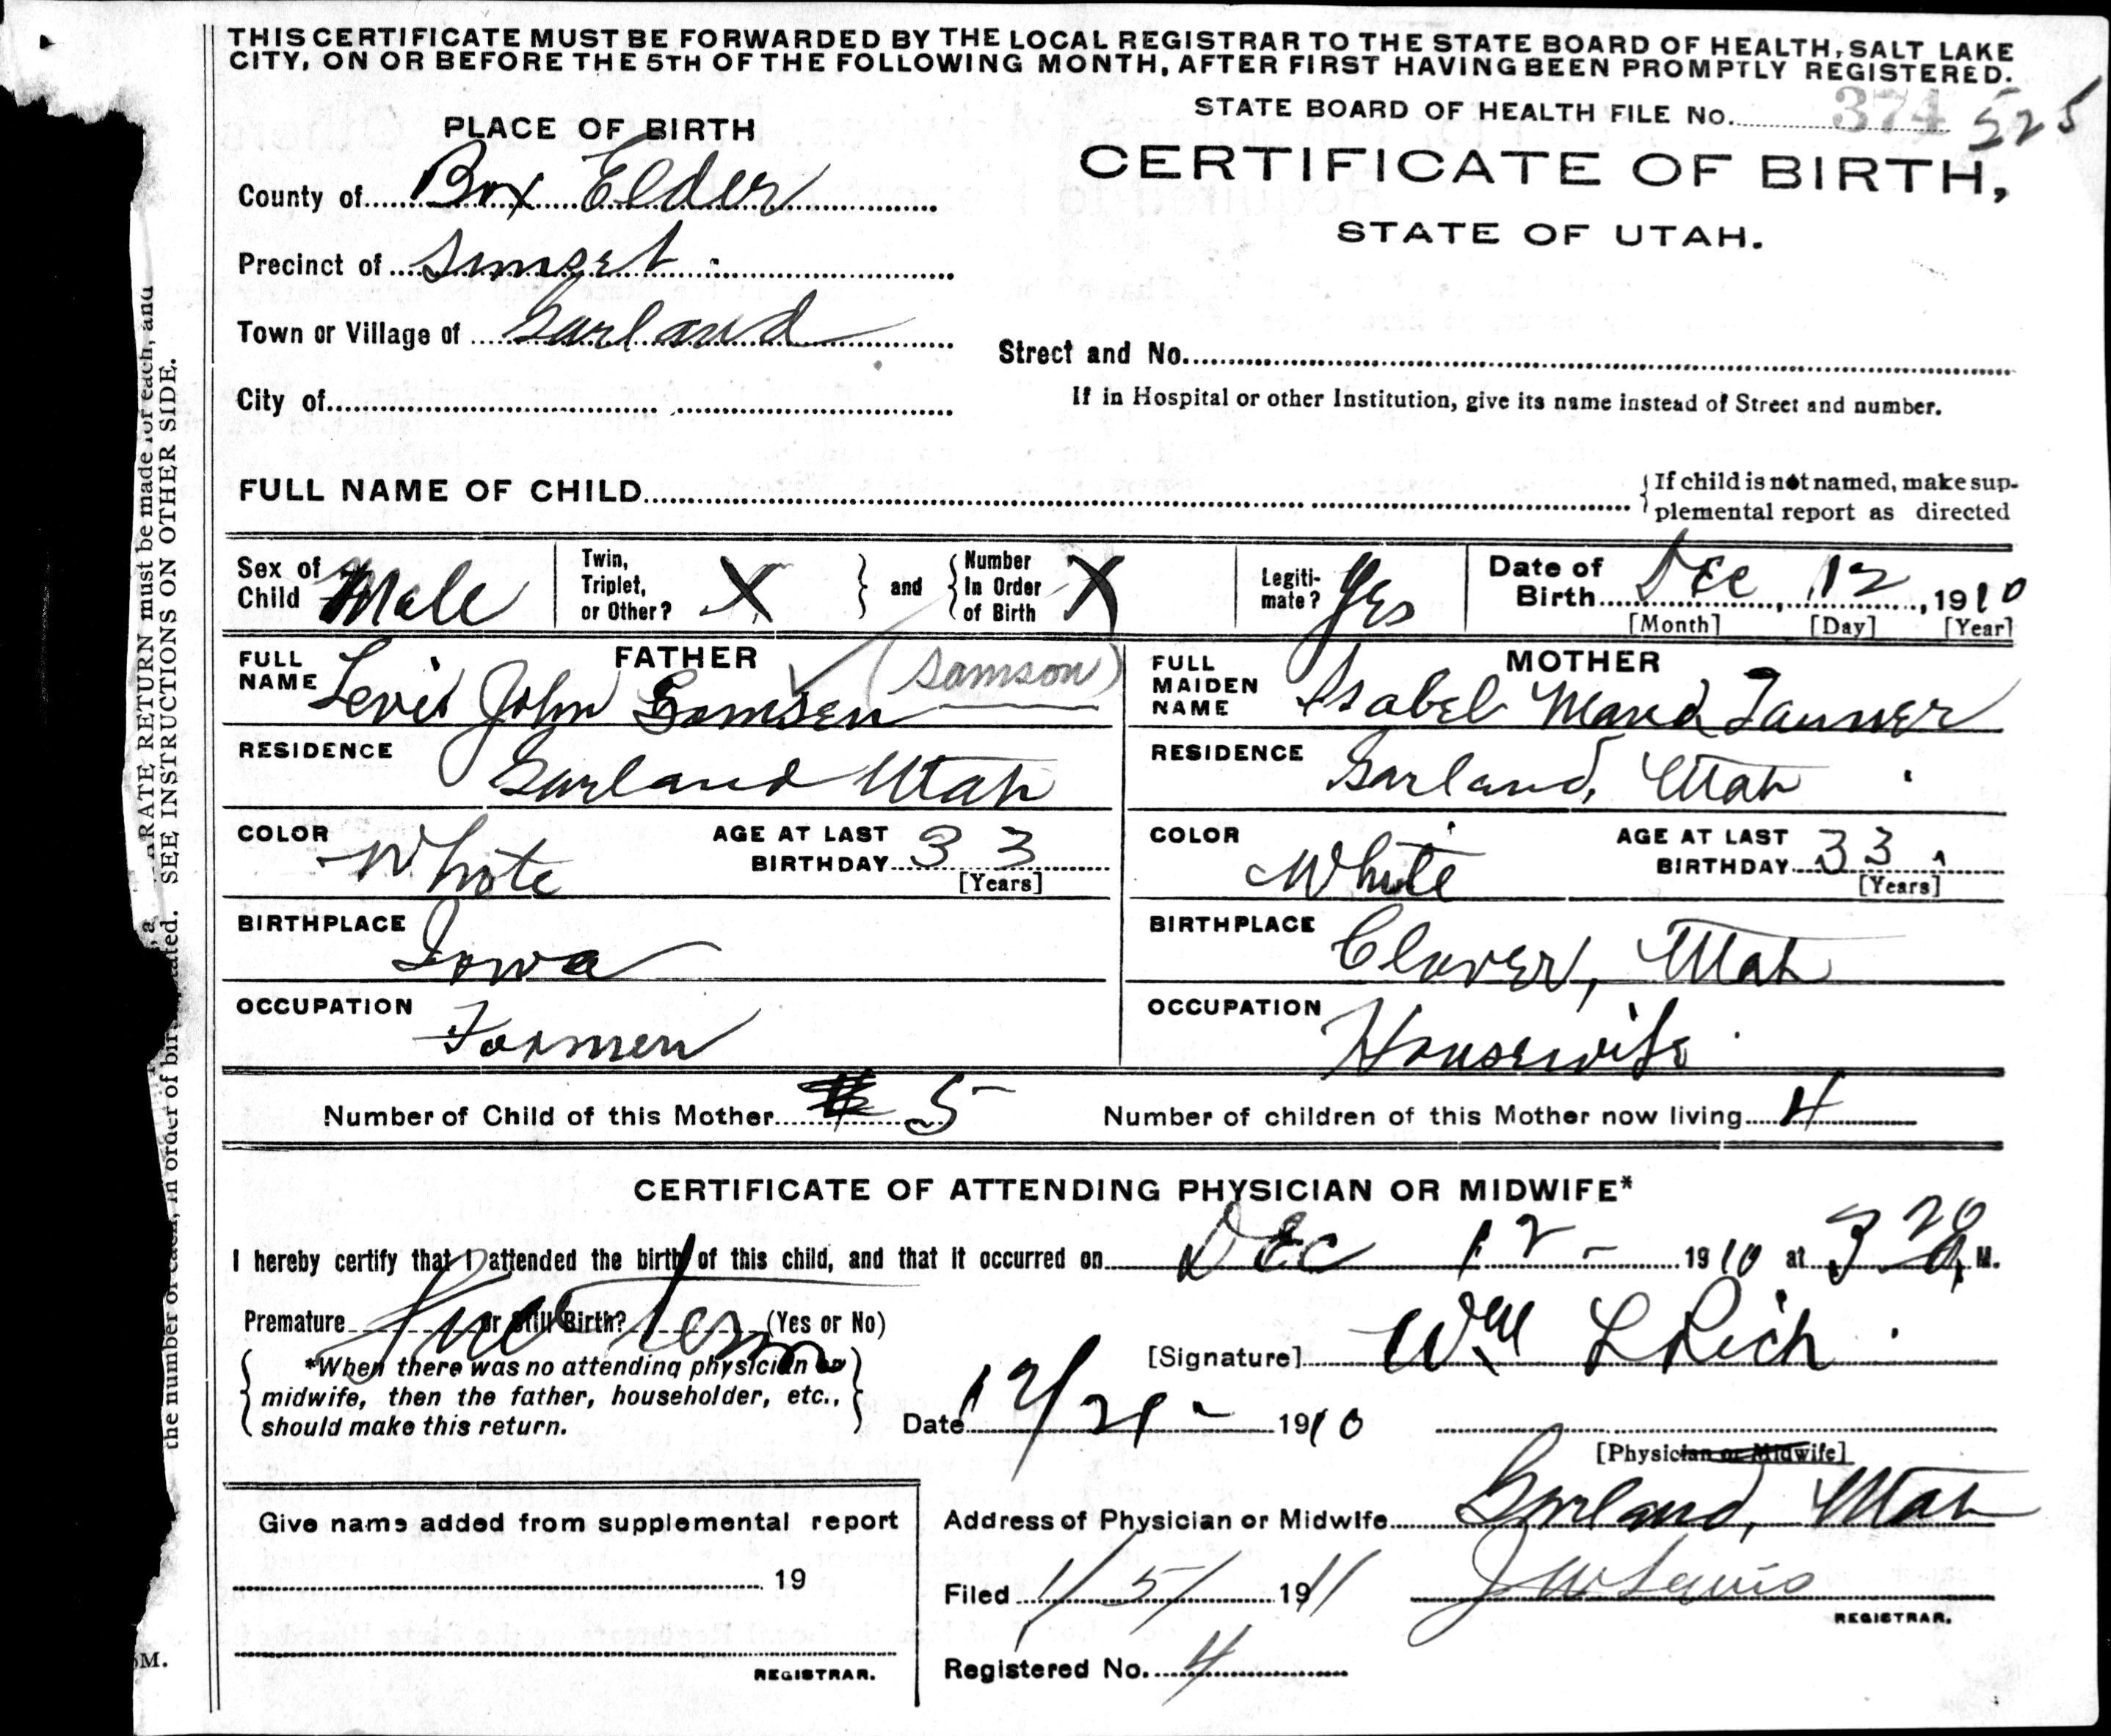 THIS CERTIFICATE MUST BE FORWARDED BY THE LOCAL REGISTRAR TO THE STATE BOARD OF HEALTH, SALT LAKE
CITY, ON OR BEFORE THE 5TH OF THE FOLLOWING MONTH, AFTER FIRST HAVING BEEN PROMPTLY REGISTERED.
STATE BOARD OF HEALTH FILE No. 374 525
PLACE OF BIRTH
CERTIFICATE OF BIRTH,
STATE OF UTAH.
County of Box Elder
Precinct of Sunset
Town or Village of Garland
Street and No.
City of
If in Hospital or other Institution, give its name instead of Street and number.
FULL NAME OF CHILD
If child is not named, make sup-
plemental report as directed
Sex of Child Male
Twin, Triplet, or Other? X
and Number In Order of Birth X
Legiti-mate? Yes
Date of Birth Dec 12, 1910
[Month] [Day] [Year]
FATHER
FULL NAME Levis John Somsen (Samson)
RESIDENCE Garland Utah
COLOR White
AGE AT LAST BIRTHDAY 33
[Years]
BIRTHPLACE Iowa
OCCUPATION Farmer
MOTHER
FULL MAIDEN NAME Isabel Maud Tanner
RESIDENCE Garland, Utah
COLOR White
AGE AT LAST BIRTHDAY 33
[Years]
BIRTHPLACE Clover, Utah
OCCUPATION Housewife
Number of Child of this Mother 5
Number of children of this Mother now living 4
CERTIFICATE OF ATTENDING PHYSICIAN OR MIDWIFE*
I hereby certify that I attended the birth of this child, and that it occurred on Dec 12 - 1910 at 3 20 M.
Premature or Still Birth? (Yes or No)
[Signature] Wm L Rich
*When there was no attending physician or
midwife, then the father, householder, etc.,
should make this return.
Date 12/21 - 1910
[Physician or Midwife]
Give name added from supplemental report
19
REGISTRAR.
Address of Physician or Midwife Garland, Utah
Filed 1/5/ 1911 J W Lewis
REGISTRAR.
Registered No. 4
ARATE RETURN must be made for each, and
SEE INSTRUCTIONS ON OTHER SIDE.
the number of each, in order of
M.